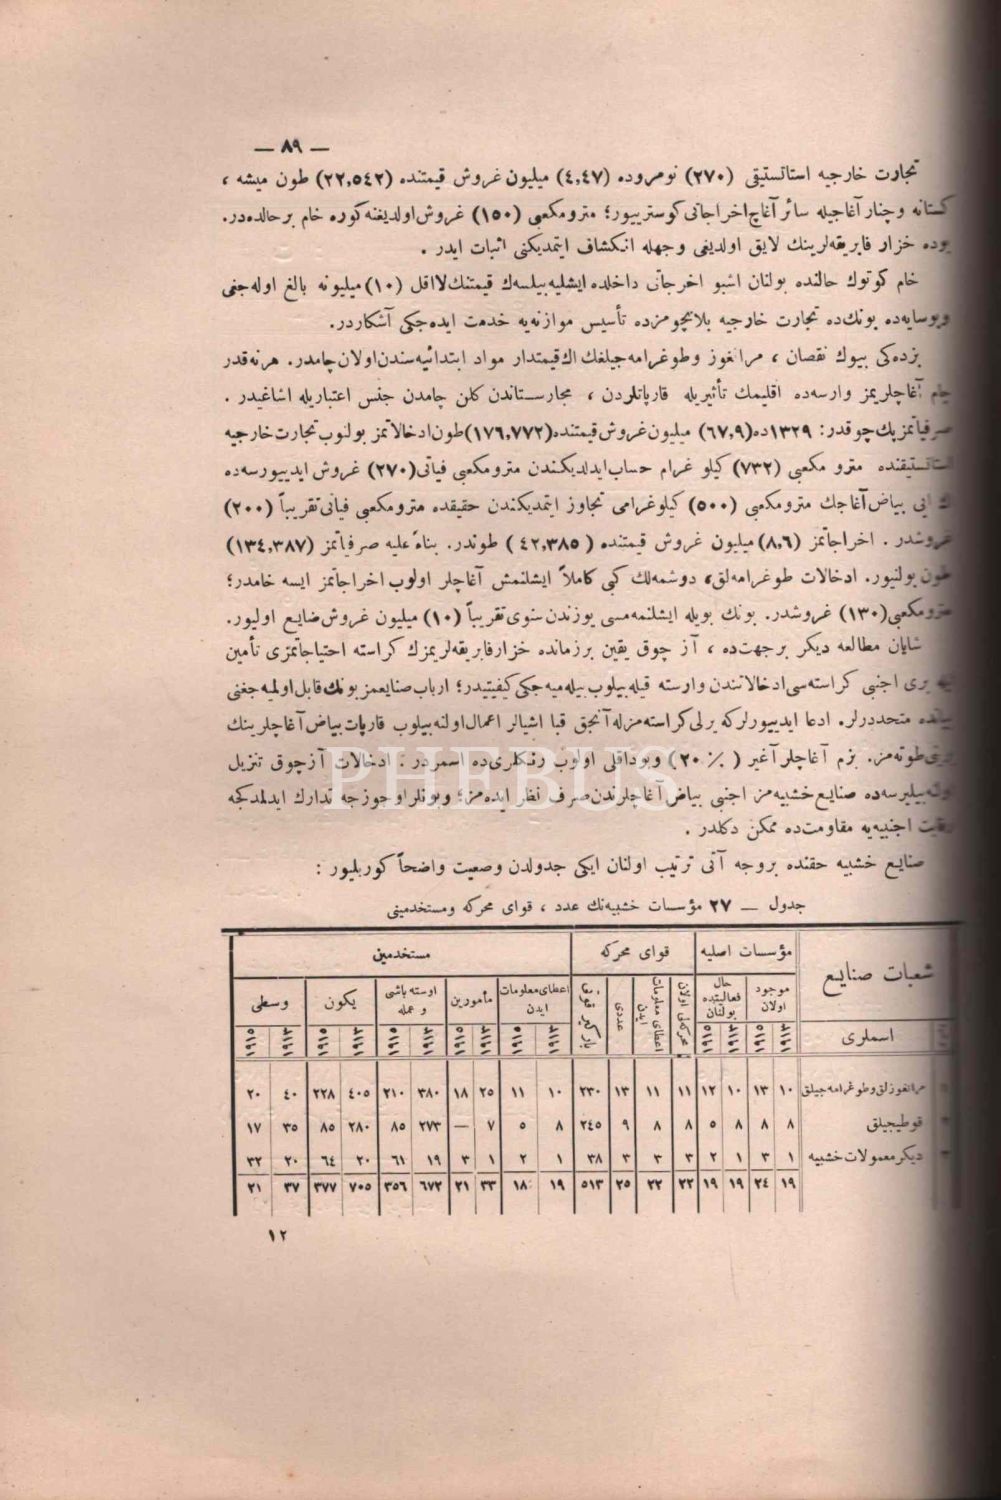 — ٨٩ —
تجارت خارجیه استاتستیقی (٢٧٠) نومروده (٤,٤٧) میلیون غروش قیمتنده (٢٢,٥٤٢) طون میشه ،
کستانه و چنار آغاجیله سائر آغاج اخراجاتی کوسترییور؛ مترو مکعبی (١٥٠) غروش اولدیغنه کوره خام بر حالده‌در.
بوده خزار فابریقه‌لرینك لایق اولدیغی وجهله انکشاف ایتمدیکنی اثبات ایدر .
خام کوتوك حالنده بولنان اشبو اخرجاتی داخلده ایشلیه بیلسه‌ك قیمتنك لااقل (١٠) میلیونه بالغ اوله‌جغی
وبوسایه‌ده بونك‌ده تجارت خارجیه بلانچومزده تأسیس موازنه‌یه خدمت ایده‌جکی آشکاردر.
بزده‌کی بیوك نقصان ، مرانغوز وطوغرامه‌جیلغك اك قیمتدار مواد ابتدائیه‌سندن اولان چامدر. هرنه‌قدر
چام آغاچلریمز وارسه‌ده اقلیمك تأثیریله قارپاتلردن ، مجارستاندن کلن چامدن جنس اعتباریله اشاغیدر .
صرفیاتمز پك چوقدر: ١٣٢٩ده (٦٧,٩) میلیون غروش قیمتنده (١٧٦,٧٧٢) طون ادخالاتمز بولنوب تجارت خارجیه
استاتستیقنده مترو مکعبی (٧٣٢) کیلو غرام حساب ایدلدیکندن مترو مکعبی فیاتی (٢٧٠) غروش ایدییورسه‌ده
ایی بیاض آغاجك مترو مکعبی (٥٠٠) کیلوغرامی تجاوز ایتمدیکندن حقیقده مترو مکعبی فیاتی تقریباً (٢٠٠)
غروشدر . اخراجاتمز (٨,٦) میلیون غروش قیمتنده (٤٢,٣٨٥) طوندر. بناءً علیه صرفیاتمز (١٣٤,٣٨٧)
طون بولنیور. ادخالات طوغرامه‌لق، دوشمه‌لك کبی کاملاً ایشلنمش آغاچلر اولوب اخراجاتمز ایسه خامدر؛
مترو مکعبی (١٣٠) غروشدر. بونك بویله ایشلنمه‌مسی یوزندن سنوی تقریباً (١٠) میلیون غروش ضایع اولیور.
شایان مطالعه دیکر بر جهت‌ده ، آز چوق یقین بر زمانده خزار فابریقه‌لریمزك کراسته احتیاجاتمزی تأمین
یری اجنبی کراسته‌سی ادخالاتندن وارسته قیله‌بیلوب بیله‌میه‌جکی کیفیتیدر؛ ارباب صنایعمز بونك قابل اولمیه‌جغنی
بیاننده متحددرلر. ادعا ایدییورلرکه یرلی کراسته‌مزله آنجق قبا اشیالر اعمال اولنه‌بیلوب قارپات بیاض آغاچلرینك
یرینی طوته‌مز. بزم آغاچلر آغیر (٪ ٢٠) وبوداقلی اولوب رنکلری‌ده اسمردر . ادخالات آز چوق تنزیل
اولنه‌بیلیرسه‌ده صنایع خشبیه‌مز اجنبی بیاض آغاچلرندن صرف نظر ایده‌مز؛ وبونلر اوجوزجه تدارك ایدلمدکجه
رقابت اجنبیه‌یه مقاومت‌ده ممکن دکلدر .
صنایع خشبیه حقنده بروجه آتی ترتیب اولنان ایکی جدولدن وضعیت واضحاً کوریلیور :
جدول — ٢٧ مؤسسات خشبیه‌نك عدد ، قوای محرکه ومستخدمینی
شعبات صنایع مؤسسات اصلیه قوای محرکه مستخدمین
موجود اولان حال فعالیتده بولنان محرکه‌لی اولان اعطای معلومات ایدن عددی بارکیر قوتی اعطای معلومات ایدن مأمورین اوسته باشی و عمله یکون وسطی
اسملری ١٩١٣ ١٩١٥ ١٩١٣ ١٩١٥ ١٩١٣ ١٩١٥ ١٩١٣ ١٩١٥ ١٩١٣ ١٩١٥ ١٩١٣ ١٩١٥ ١٩١٣ ١٩١٥
مرانغوزلق وطوغرامه‌جیلق ١٠ ١٣ ١٠ ١٢ ١١ ١١ ١٣ ٢٣٠ ١٠ ١١ ٢٥ ١٨ ٣٨٠ ٢١٠ ٤٠٥ ٢٢٨ ٤٠ ٢٠
قوطیجیلق ٨ ٨ ٨ ٥ ٨ ٨ ٩ ٢٤٥ ٨ ٥ ٧ — ٢٧٣ ٨٥ ٢٨٠ ٨٥ ٣٥ ١٧
دیکر معمولات خشبیه ١ ٣ ١ ٢ ٣ ٣ ٣ ٣٨ ١ ٢ ١ ٣ ١٩ ٦١ ٢٠ ٦٤ ٢٠ ٣٢
١٩ ٢٤ ١٩ ١٩ ٢٢ ٢٢ ٢٥ ٥١٣ ١٩ ١٨ ٣٣ ٢١ ٦٧٢ ٣٥٦ ٧٠٥ ٣٧٧ ٣٧ ٢١
١٢
PHEBUS